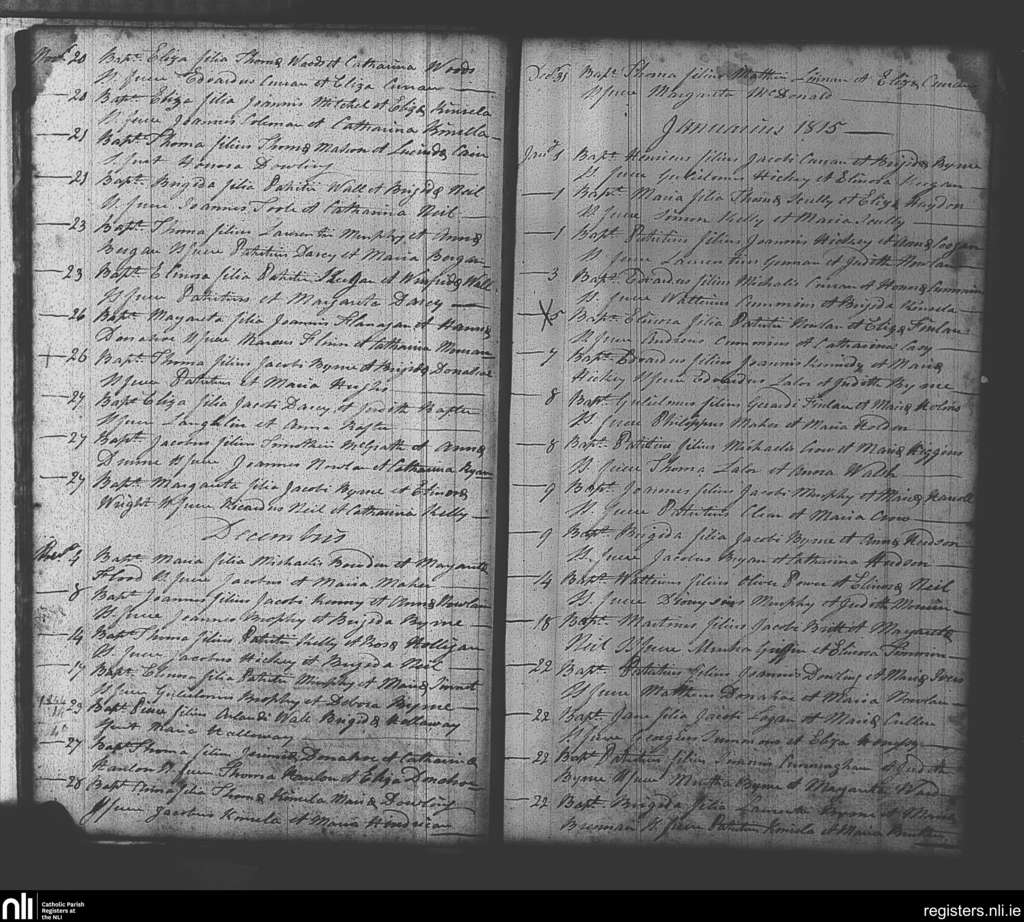 Novr 20 Bapt. Eliza filia Thomæ Woods et Catharina Woods
Sp. fuere Edvardus Curran et Eliza Curran
20 Bapt. Eliza filia Joannis Mitchel et Eliza Kinsela
Sp. fuere Joannis Coleman et Catharina Kinsella
21 Bapt. Thoma filius Thomæ Mason et Lucinda Cain
Sp. fuit Honora Dowling
21 Bapt. Brigida filia Patritii Wall et Brigidæ Neil
Sp. fuere Joannes Toole et Catharina Neil
23 Bapt. Thoma filius Laurentii Murphy et Annæ
Bergan Sp fuere Patritius Darcy et Maria Bergan
23 Bapt. Elinora filia Patritii et Winefridæ Wall
Sp fuere Patritius et Margareta Darcy
26 Bapt. Margareta filia Joannis Flanagan et
Donahoe Sp fuere Marcus Flinn et Catharina
26 Bapt. Thoma filius Jacobi Byrne et Brigidæ Donahoe
Sp fuere Patritius et Maria Hughs
27 Bapt. Eliza filia Jacobi Darcy et Judith Rafter
Sp fuere Laughlin et Anna Rafter
27 Bapt. Jacobus filius Timothei McGrath et Annæ
Dunne Sp fuere Joannes Nowlan et Catharina Ryan
27 Bapt. Margareta filia Jacobi Byrne et Elinoræ
Wright Sp fuere Ricardus Neil et Catharina Kelly
Decembris
Decr 4 Bapt. Maria filia Michaelis Bowden et Margaritæ
Flood Sp fuere Jacobus et Maria Maher
8 Bapt. Joannes filius Jacobi Kenny et Annæ Nowlan
Sp fuere Joannes Murphy et Brigida Byrne
14 Bapt. Thoma filius Patritii Kelly et Rosæ Holligan
Sp fuere Jacobus Hickey et Brigida Neil
17 Bapt. Elinora filia Patritii Murphy et Mariæ Sinnot
Sp fuere Gulielmus Murphy et Debora Byrne
23 Bapt. filius Orlandi Wall Brigidæ Hallaway
fuit Maria Hallaway
27 Bapt. Thoma filius Joannis Donahoe et Catharinæ
Hanlon Sp fuere Thoma Hanlon et Eliza Donahoe
28 Bapt. Anna filia Thomæ Kinsela Mariæ Dowling
Sp fuere Jacobus Kinsela et Maria Hendrican
Decr 31 Bapt. Thoma filius Matthei et Eliza
Sp fuere Margareta McDonald
Januarius 1815
Janr 1 Bapt. Henricus filius Jacobi Curran et Brigidæ Byrne
Sp. fuere Gulielmus Hickey et Elinora Bergan
1 Bapt. Maria filia Thomæ Scully et Elizæ Haydon
Sp. fuere Simon Kelly et Maria Scully
1 Bapt. Patritius filius Joannis Hickey et Annæ Coogan
Sp. fuere Laurentius Gorman et Judith Nowlan
3 Bapt. Edvardus filius Michaelis Curran et Honoræ Cummins
Sp. fuere Walterius Cummins et Brigida Kinsela
5 Bapt. Elinora filia Patritii Nowlan et Elizæ Finlan
Sp. fuere Andreas Cummins et Catharina Casy
7 Bapt. Edvardus filius Joannis Kennedy et Mariæ
Hickey Sp fuere Edvardus Lalor et Judith Byrne
8 Bapt. Gulielmus filius Gerardi Finlan et Mariæ Nolens
Sp. fuere Philippus Maher et Maria Holden
8 Bapt. Patritius filius Michaelis Crow et Mariæ Higgins
Sp. fuere Thoma Lalor et Anna Walsh
9 Bapt. Joannes filius Jacobi Murphy et Mariæ
Sp. fuere Patritius Clear et Maria Crow
9 Bapt. Brigida filia Jacobi Byrne et Annæ Hudson
Sp. fuere Jacobus Bryan et Catharina Hudson
14 Bapt. Walterius filius Oliver Power et Elinoræ Neil
Sp. fuere Dionysius Murphy et Judith
18 Bapt. Martinus filius Jacobi Britt et Margaritæ
Neil Sp fuere Martha Griffin et Elinora Simmons
22 Bapt. Patritius filius Joannis Dowling et Mariæ
Sp fuere Matthew Donahoe et Maria Nowlan
22 Bapt. Jana filia Jacobi Logan et Mariæ Cullen
Sp fuere Georgius Simmons et Eliza
22 Bapt. Patritius filius Joannis Cunningham et Judith
Byrne Sp fuere Martha Byrne et Margarita Ward
22 Bapt. Brigida filia Laurentii Byrne et
Brennan Sp. fuere Patritius Kinsela et Maria
nli Catholic Parish Registers at the NLI
registers.nli.ie